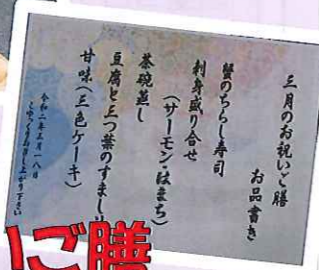 三月のお祝いご膳
お品書き
蟹のちらし寿司
刺身盛り合せ
(サーモン・はまち)
茶碗蒸し
豆腐と三つ葉のすまし
甘味(三色ケーキ)
令和二年三月一八日
ごゆっくりお召し上がり下さい
ご膳